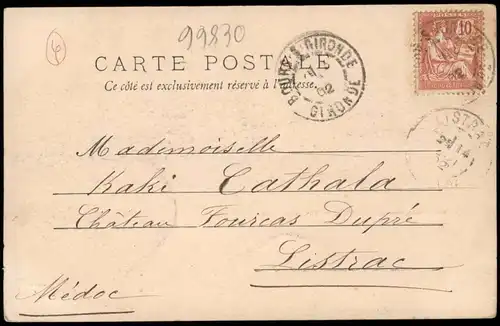 99830
4
CARTE POSTALE
Ce côté est exclusivement réservé à l'adresse.
BOURG-S-GIRONDE
02
GIRONDE
POSTES
10
LISTRAC
Mademoiselle
Kaki Cathala
Château Fourcas Dupré
Listrac
Médoc